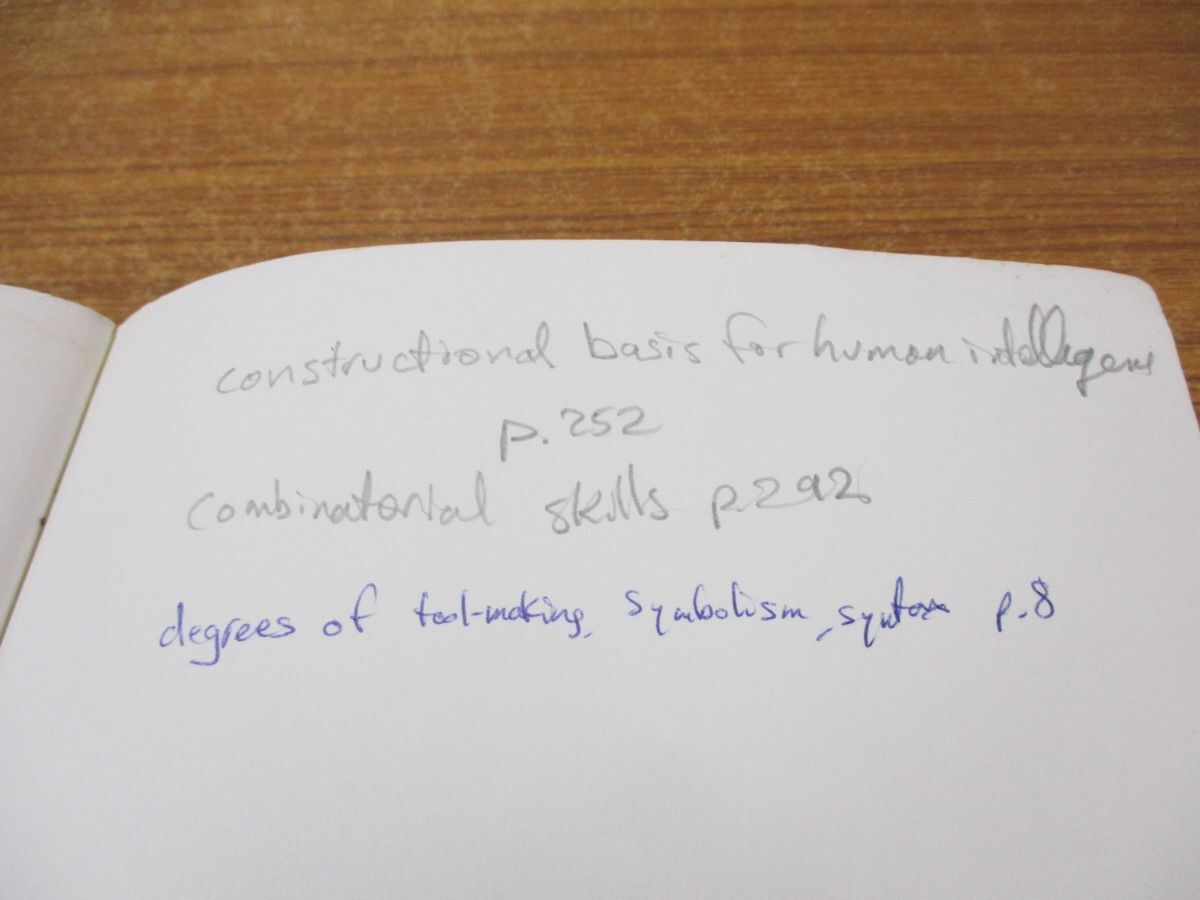 constructional basis for human intelligence
p.252
combinatorial skills p.292
degrees of tool-making, symbolism, syntax p.8